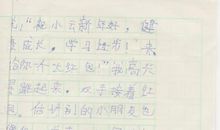 “祝小云新年好，健
康成长，学习进步！来
给你个大红包！”我高兴
得跳起来，双手接着红
包。估计别的小朋友也